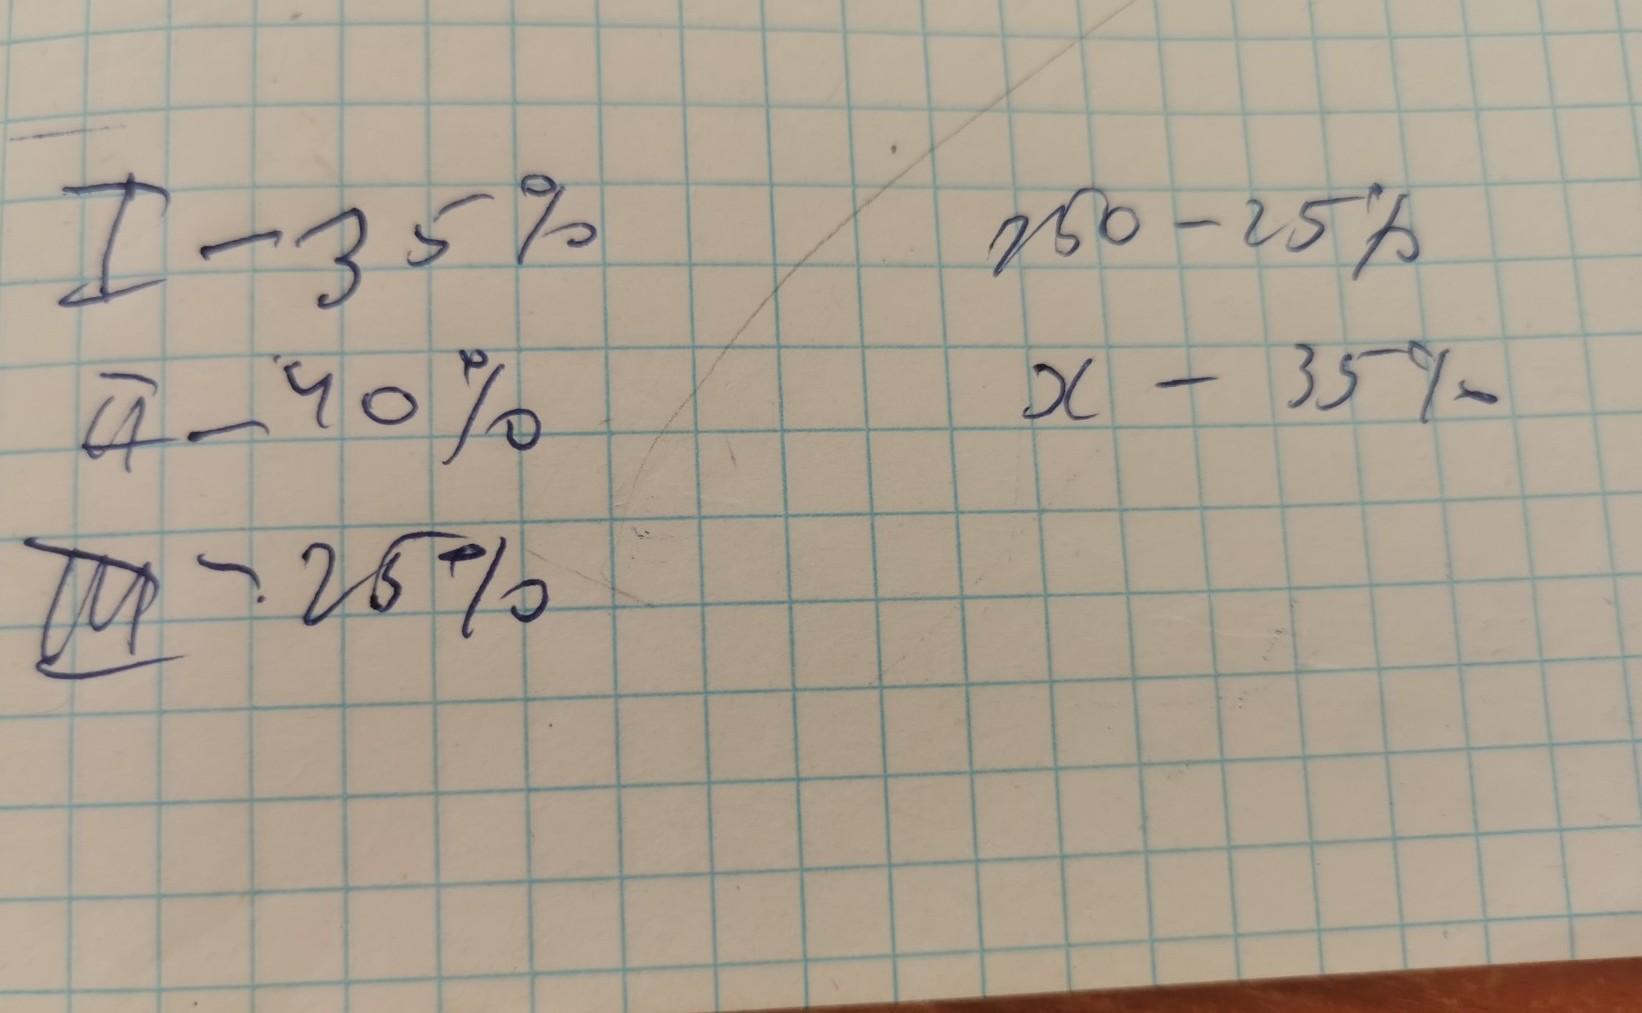 I - 35%
II - 40%
III - 25%
250 - 25%
x - 35%